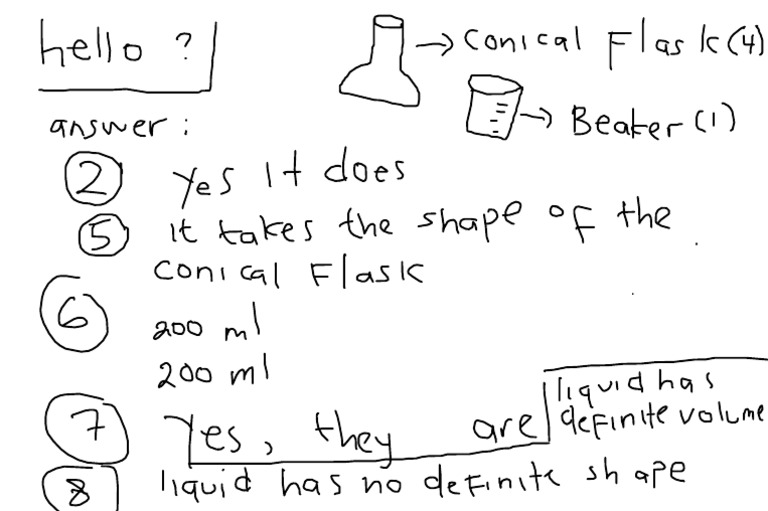 hello ?
→ Conical Flask (4)
→ Beaker (1)
answer :
② Yes It does
⑤ it takes the shape of the
conical Flask
⑥ 200 ml
200 ml
⑦ Yes, they are
liquid has
definite volume
⑧ liquid has no definite shape